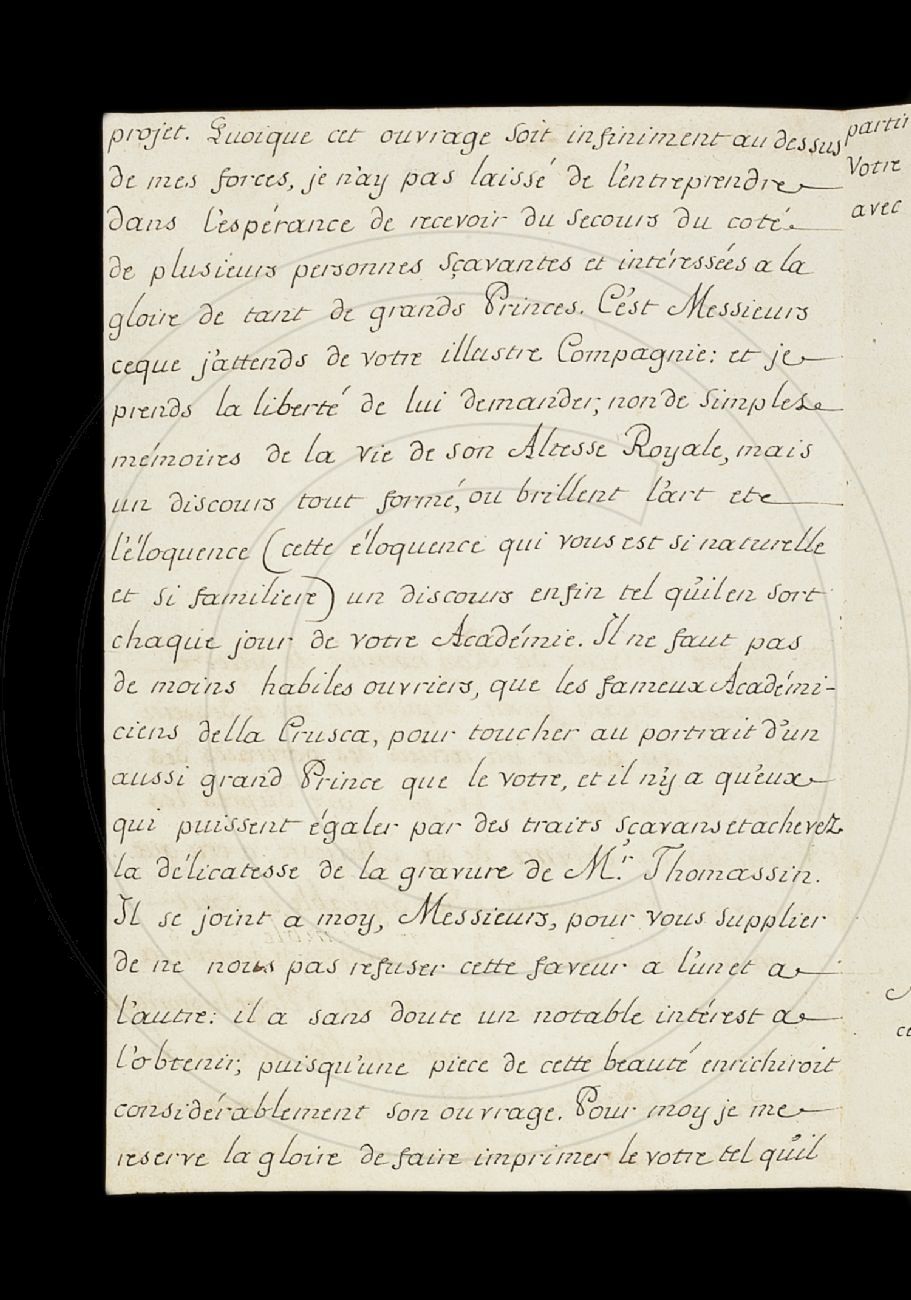 projet. Quoique cet ouvrage soit infiniment au dessus
de mes forces, je n'ay pas laissé de l'entreprendre
dans l'espérance de recevoir du secours du coté
de plusieurs personnes sçavantes et intéressées a la
gloire de tant de grands Princes. C'est Messieurs
ceque j'attends de votre illustre Compagnie: et je
prends la liberté de lui demander, non de simples
mémoires de la vie de son Altesse Royale, mais
un discours tout formé, ou brillent l'art et
l'éloquence (cette éloquence qui vous est si naturelle
et si familiere) un discours enfin tel qu'il en sort
chaque jour de votre Académie. Il ne faut pas
de moins habiles ouvriers, que les fameux Académi-
ciens della Crusca, pour toucher au portrait d'un
aussi grand Prince que le votre, et il n'y a qu'eux
qui puissent égaler par des traits sçavans et achevez
la délicatesse de la gravure de M.r Thomassin.
Il se joint a moy, Messieurs, pour vous supplier
de ne nous pas refuser cette faveur a l'un et a
l'autre: il a sans doute un notable intérest a
l'obtenir; puisqu'une piece de cette beauté enrichiroit
considérablement son ouvrage. Pour moy je me
reserve la gloire de faire imprimer le votre tel qu'il
partir
Votre
avec